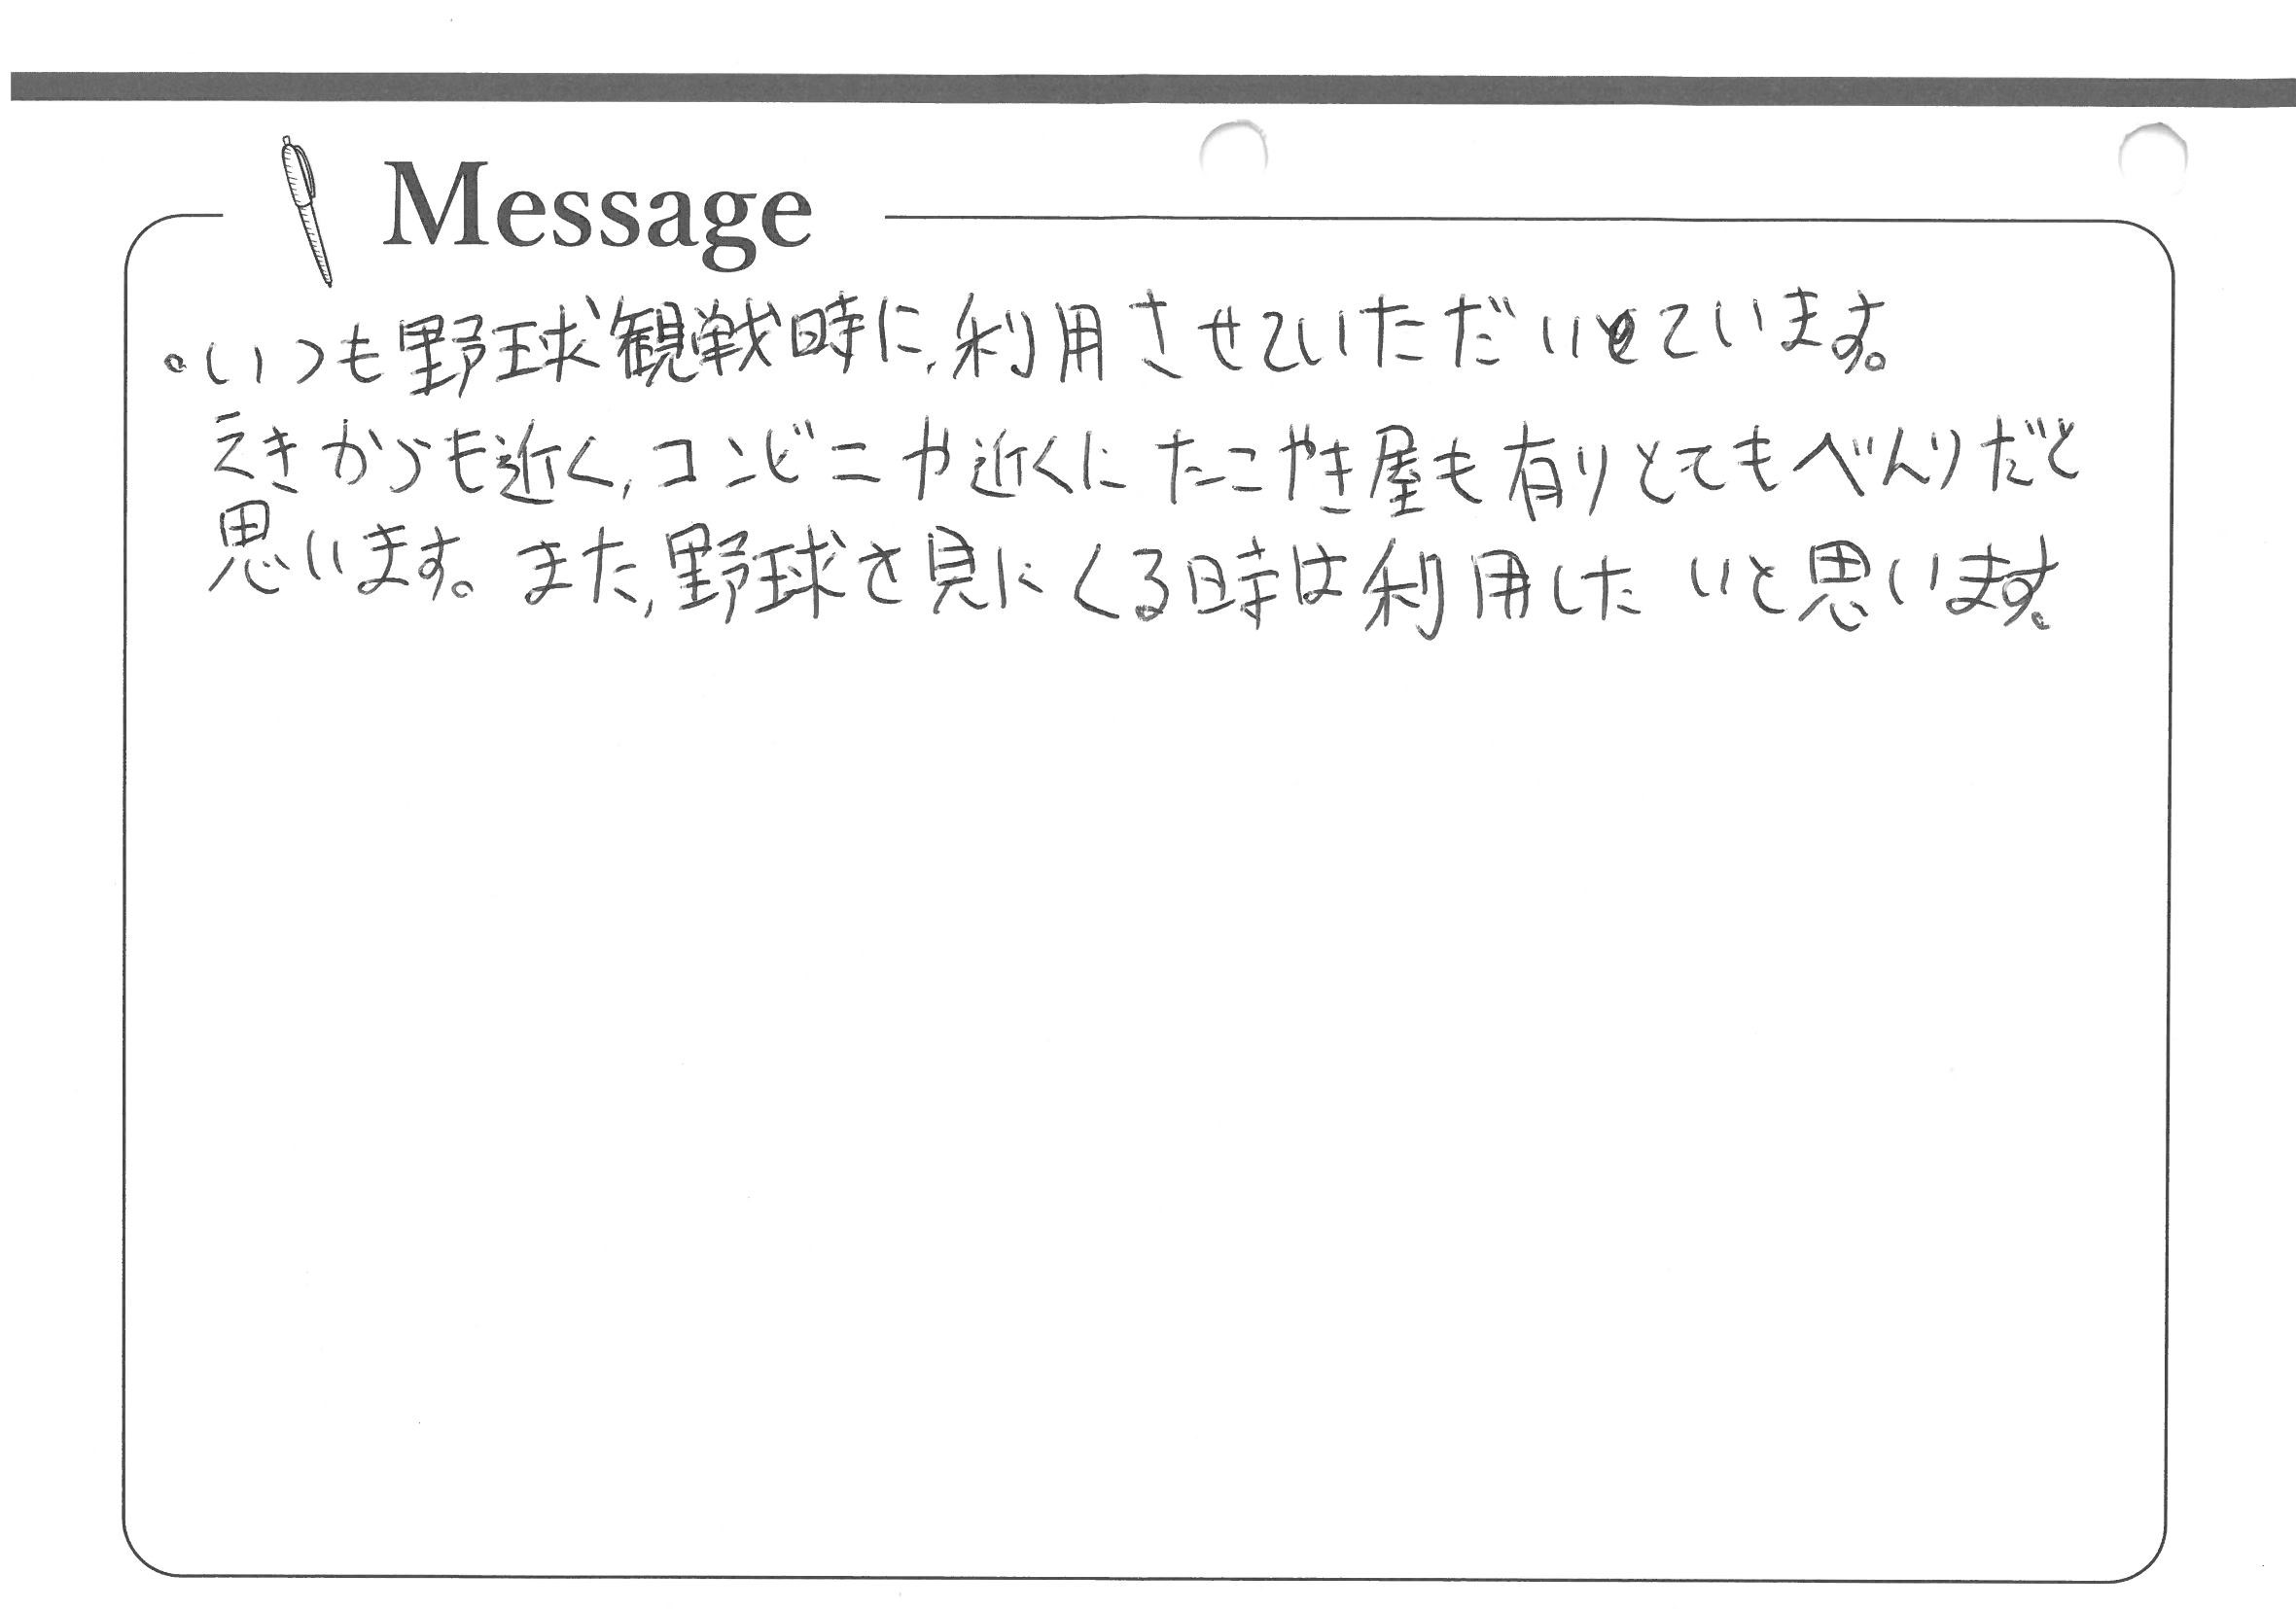 Message
。いつも野球観戦時に、利用させていただいています。
えきからも近く、コンビニや近くにたこやき屋も有りとてもべんりだと
思います。また、野球を見にくる時は利用したいと思います。